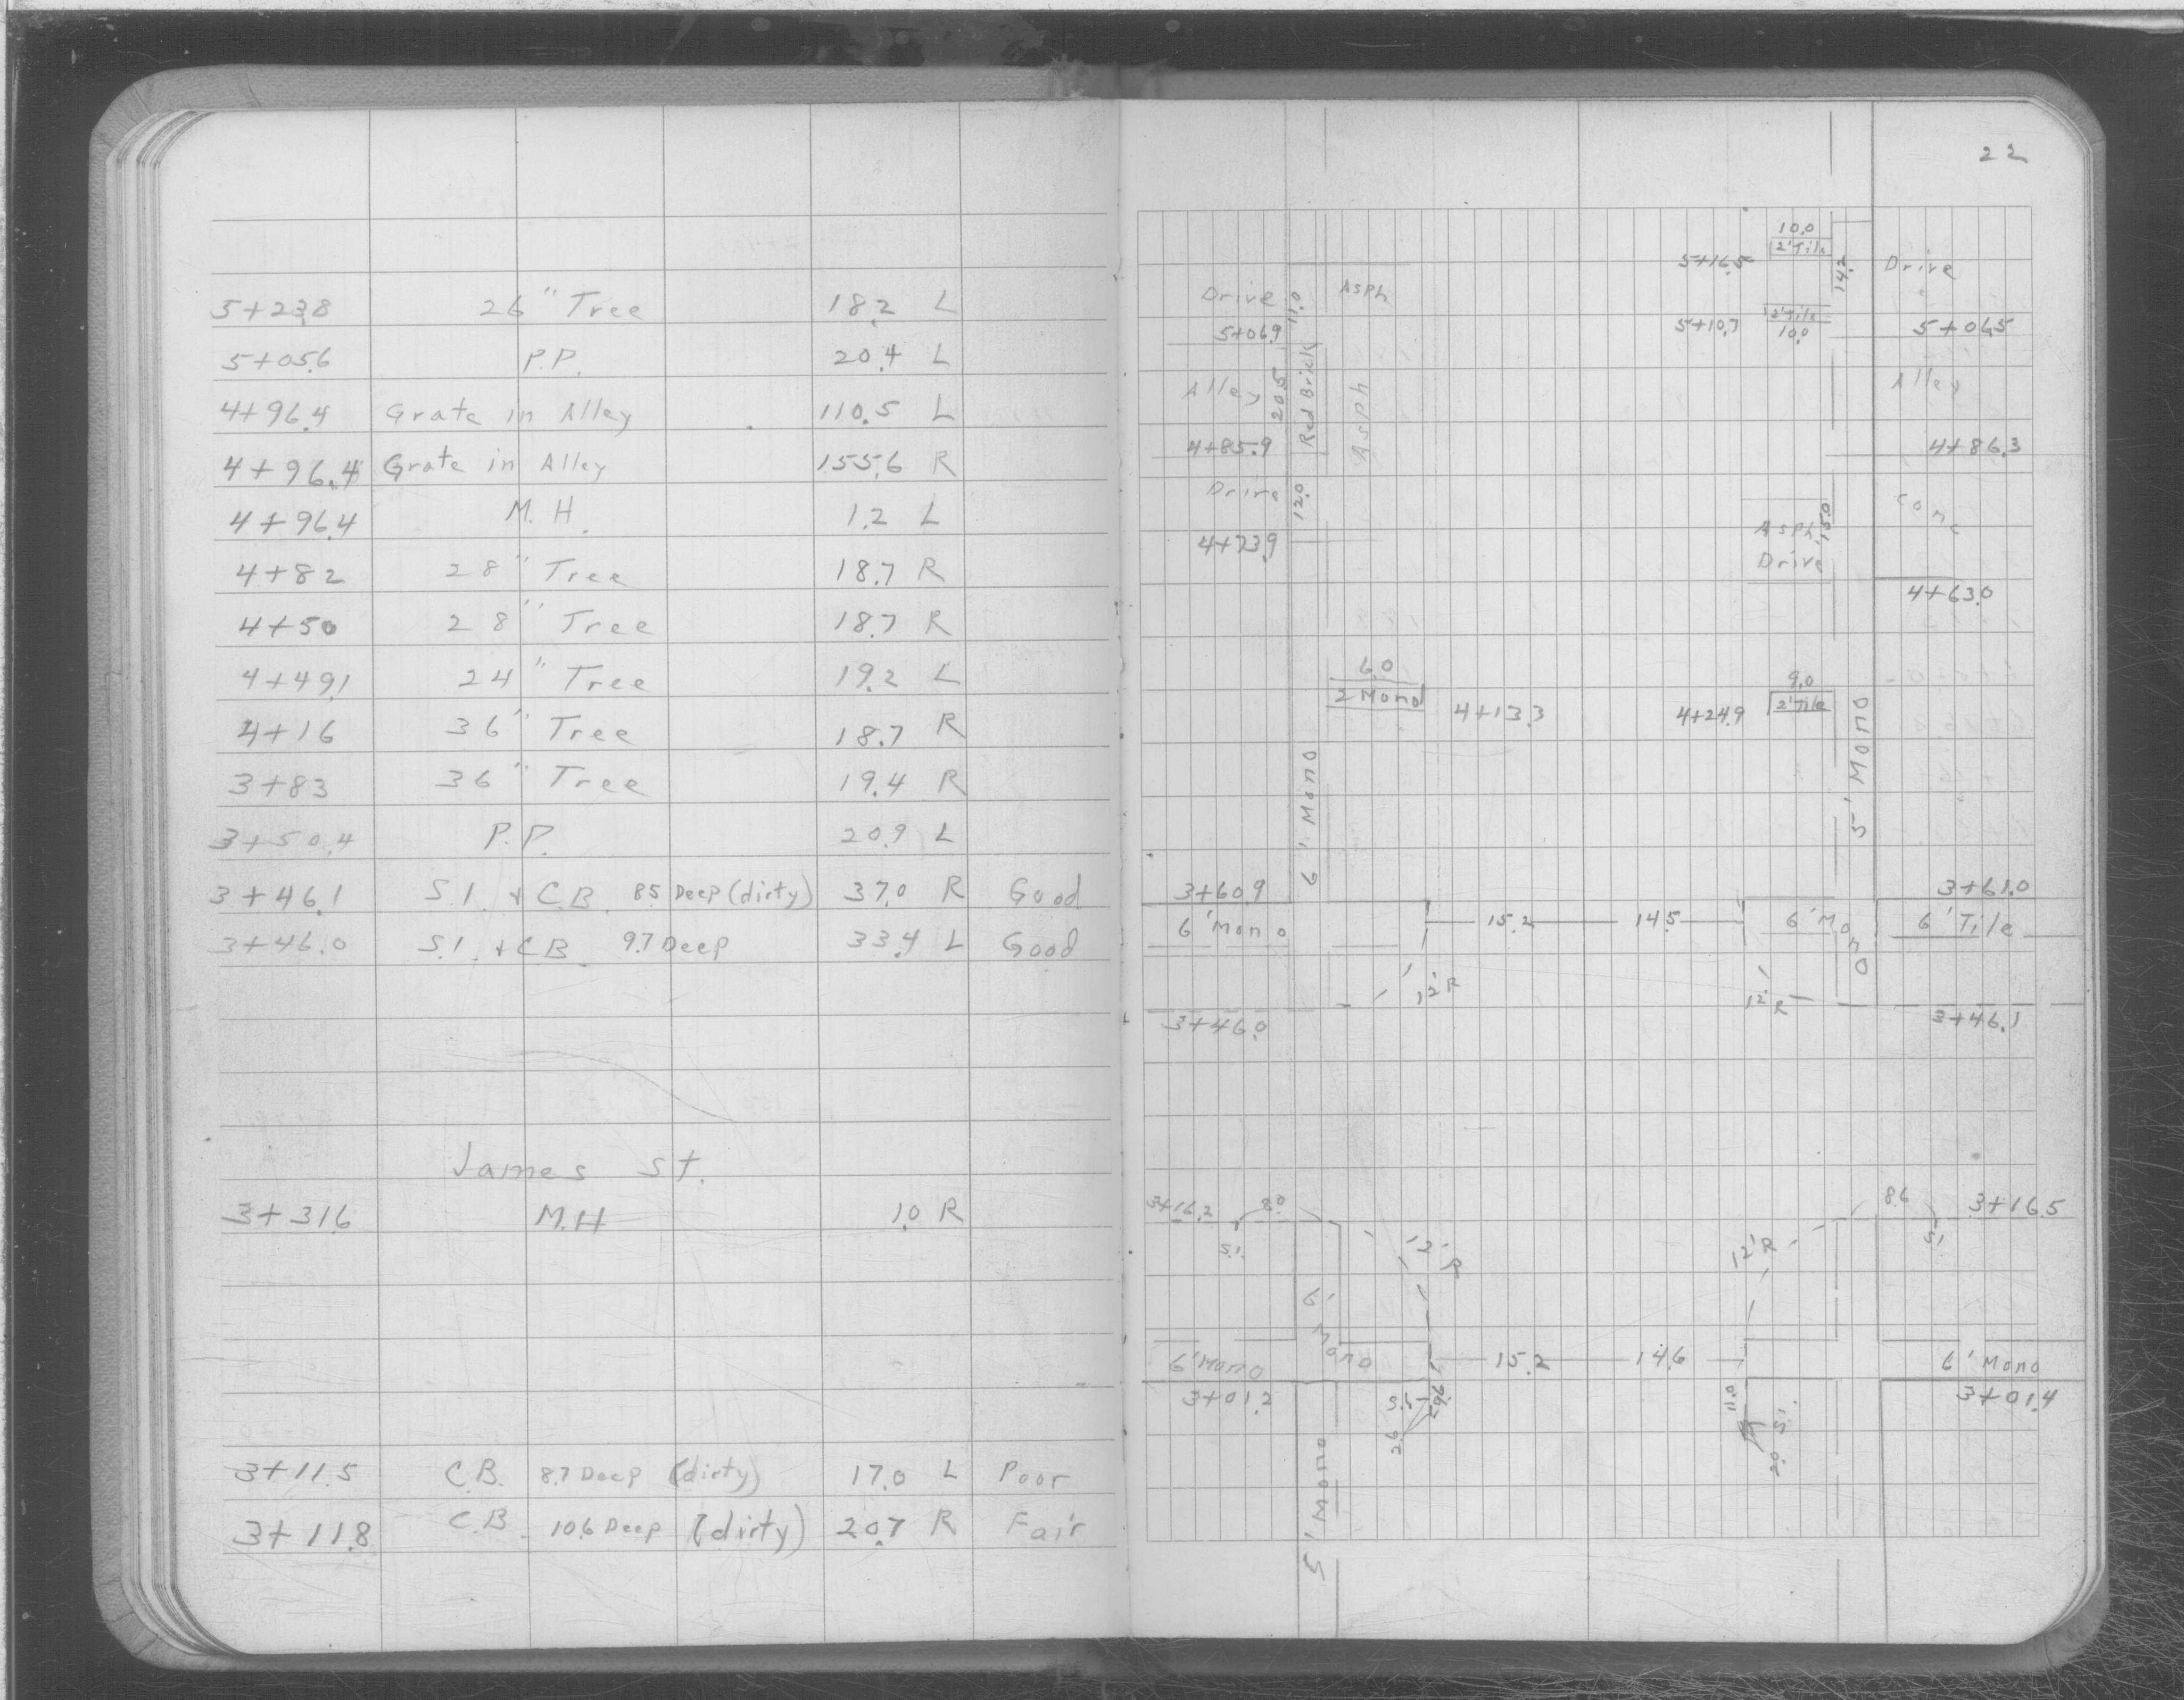 5+23.8 26" Tree 18.2 L
5+05.6 P.P. 20.4 L
4+96.4 Grate in Alley 110.5 L
4+96.4 Grate in Alley 155.6 R
4+96.4 M.H. 1.2 L
4+82 28" Tree 18.7 R
4+50 28" Tree 18.7 R
4+49.1 24" Tree 19.2 L
4+16 36" Tree 18.7 R
3+83 36" Tree 19.4 R
3+50.4 P.P. 20.9 L
3+46.1 S.I. + C.B. 8.5 Deep (dirty) 37.0 R Good
3+46.0 S.I. + C.B. 9.7 Deep 33.4 L Good
James St.
3+31.6 M.H 1.0 R
3+11.5 C.B. 8.7 Deep (dirty) 17.0 L Poor
3+11.8 C.B. 10.6 Deep (dirty) 20.7 R Fair
22
10.0
5+16.5 2' Tile 14.2 Drive
Drive 11.0 Asph
5+06.9 5+10.7 2' Tile 5+04.5
10.0
Alley 20.5 Red Brick Asph Alley
4+85.9 4+86.3
Drive 12.0 Conc
4+73.9 Asph. 15.0
Drive
4+63.0
6.0 9.0
2 Mono 4+13.3 4+24.9 2' Tile
6' Mono 5' Mono
3+60.9 3+61.0
6' Mono 15.2 14.5 6' Mono 6' Tile
12' R 12' R
3+46.0 3+46.1
3+16.2 8.0 8.6 3+16.5
S.I. 12' R 12' R S.I.
6' Mono
6' Mono 15.2 14.6 6' Mono
3+01.2 5.5 29.6 11.0 3+01.4
2.6 2.0 S.I.
5' Mono